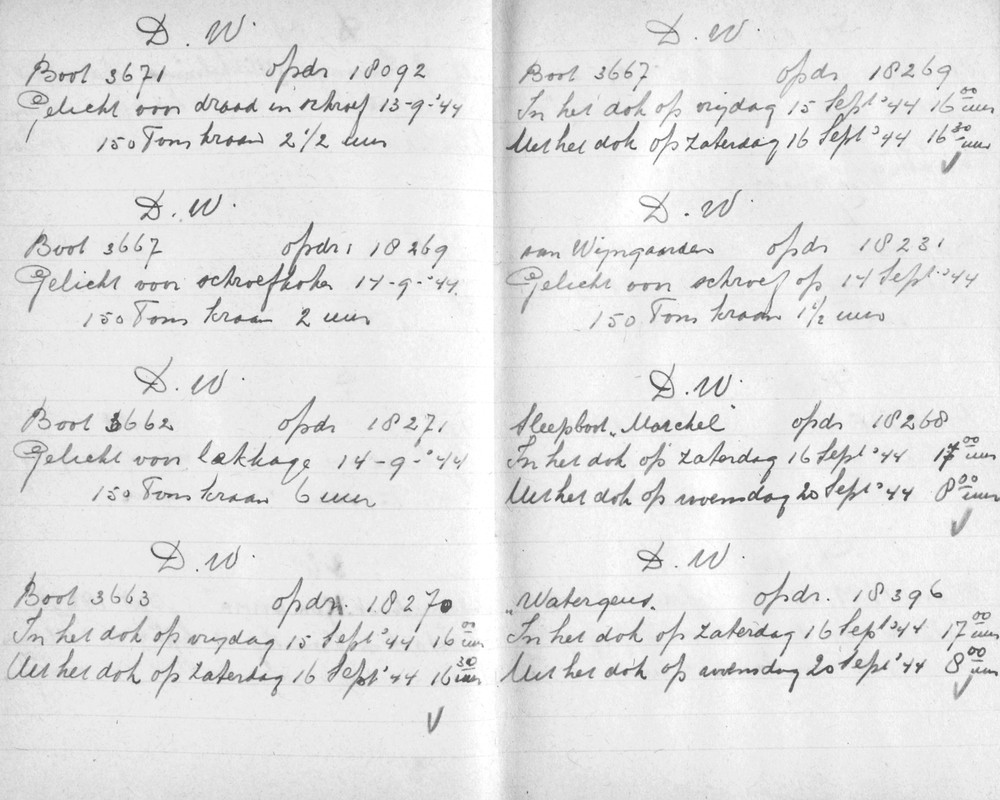 D. W.
Boot 3671 opdr 18092
Gelicht voor draad in schroef 13-9-'44
150 Tons kraan 2 1/2 uur
D. W.
Boot 3667 opdr: 18269
Gelicht voor schroefkoker 14-9-'44.
150 Tons kraan 2 uur
D. W.
Boot 3662 opdr 18271
Gelicht voor lekkage 14-9-'44
150 Tons kraan 6 uur
D. W.
Boot 3663 opdr. 18270
In het dok op vrijdag 15 Sept '44 16 00 uur
Uit het dok op Zaterdag 16 Sept '44 16 30 uur
D. W.
Boot 3667 opdr 18269
In het dok op vrijdag 15 Sept '44 16 00 uur
Uit het dok op Zaterdag 16 Sept '44 16 30 uur
D. W.
van Wijngaarden opdr 18231
Gelicht voor schroef op 14 Sept '44
150 Tons kraan 1 1/2 uur
D. W.
Sleepboot „Marchel" opdr 18268
In het dok op Zaterdag 16 Sept '44 17 00 uur
Uit het dok op woensdag 20 Sept '44 8 00 uur
D. W.
„Watergeus" opdr. 18396
In het dok op Zaterdag 16 Sept '44 17 00 uur
Uit het dok op woensdag 20 Sept '44 8 00 uur